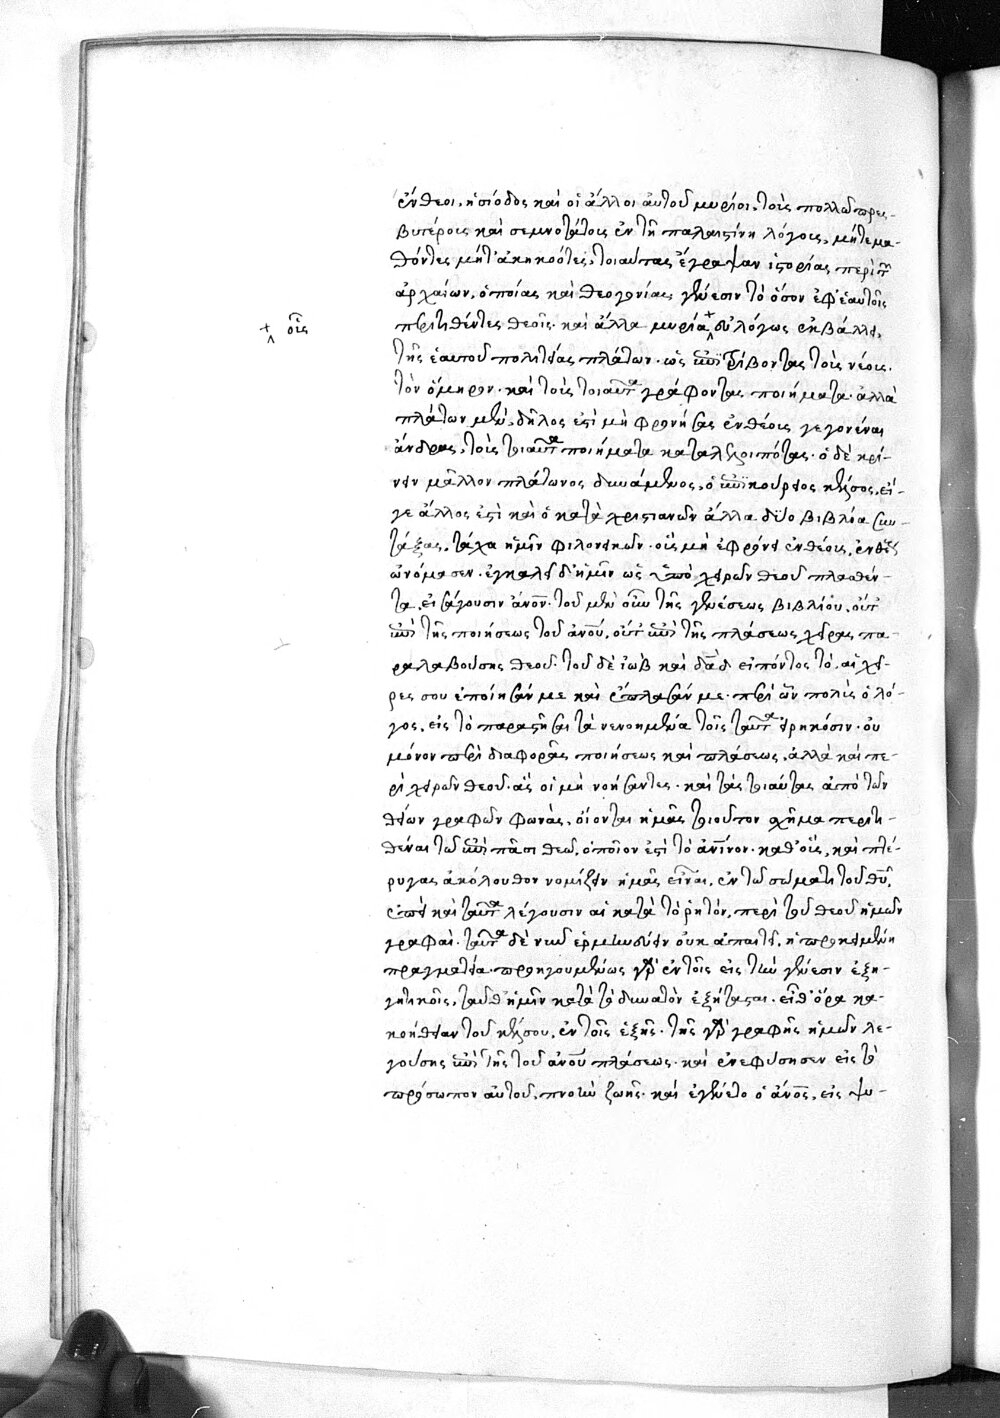 ἔνθεοι, ἡσίοδος καὶ οἱ ἄλλοι αὐτοῦ μυρίοι, τοῖς πολλῶ πρεσ-
βυτέροις καὶ σεμνοτάτοις ἐν τῆ παλαιστίνη λόγοις, μήτε μα-
θόντες μήτ' ἀκηκοότες, τοιαύτας ἔγραψαν ἱστορίας περὶ τῶν
ἀρχαίων, ὁποίας καὶ θεογονίας, γένεσιν τὸ ὅσον ἐφ' ἑαυτοῖς
περιτιθέντες θεοῖς· καὶ ἄλλα μυρία, εὐλόγως ἐκβάλλει
οἷς
τῆς ἑαυτοῦ πολιτείας πλάτων· ὡς ἐπιτρίβοντας τοὺς νέους,
τὸν ὅμηρον· καὶ τοὺς τοιαῦτα γράφοντας ποιήματα· ἀλλὰ
πλάτων μὲν, δῆλός ἐστι μὴ φρονήσας ἐνθέους γεγονέναι
ἄνδρας, τοὺς τοιαῦτα ποιήματα καταλελοιπότας· ὁ δὲ κρί-
νειν μᾶλλον πλάτωνος δυνάμενος, ὁ ἐπικούρειος κέλσος, εἴ-
γε ἄλλος ἐστὶ καὶ ὁ κατὰ χριστιανῶν ἄλλα δύο βιβλία συν-
τάξας, τάχα ἡμῖν φιλονεικῶν· οὓς μὴ ἐφρόνει ἐνθέους, ἐνθέους
ὠνόμασεν· ἐγκαλεῖ δ' ἡμῖν ὡς ὑπὸ χειρῶν θεοῦ πλασθέν-
τα, εἰσάγουσιν ἄνον· τοῦ μὲν οὖν τῆς γενέσεως βιβλίου, οὔτ'
ἐπὶ τῆς ποιήσεως τοῦ ἀνου, οὔτ' ἐπὶ τῆς πλάσεως χεῖρας πα-
ραλαβούσης θεοῦ· τοῦ δὲ ἰὼβ καὶ δαδ εἰπόντος τὸ, αἱ χεῖ-
ρές σου ἐποίησάν με καὶ ἔπλασάν με· περὶ ὧν πολὺς ὁ λό-
γος, εἰς τὸ παραστῆσαι τὰ νενοημένα τοῖς ταῦτα εἰρηκόσιν· οὐ
μόνον περὶ διαφορᾶς ποιήσεως καὶ πλάσεως, ἀλλὰ καὶ πε-
ρὶ χειρῶν θεοῦ· ἃς οἱ μὴ νοήσαντες· καὶ τὰς τοιαύτας ἀπὸ τῶν
θείων γραφῶν φωνὰς, οἴονται ἡμᾶς τοιοῦτον σχῆμα περιτι-
θέναι τῶ ἐπὶ πᾶσι θεῶ, ὁποῖόν ἐστι τὸ ἀνινον· καθ' οὓς, καὶ πτέ-
ρυγας ἀκόλουθον νομίζειν ἡμᾶς εἶναι, ἐν τῶ σώματι τοῦ θυ,
ἐπεὶ καὶ ταῦτα λέγουσιν αἱ κατὰ τὸ ῥητὸν, περὶ τοῦ θεοῦ ἡμῶν
γραφαί· ταῦτα δὲ νῦν ἑρμηνεύειν οὐκ ἀπαιτεῖ, ἡ προκειμένη
πραγματεία· προηγουμένως γὰρ ἐν τοῖς εἰς τὴν γένεσιν ἐξη-
γητικοῖς, ταῦθ' ἡμῖν κατὰ τὸ δυνατὸν ἐξήτασται· εἶθ' ὅρα κα-
κοήθειαν τοῦ κέλσου, ἐν τοῖς ἑξῆς· τῆς γὰρ γραφῆς ἡμῶν λε-
γούσης ἐπὶ τῆς τοῦ ἀνου πλάσεως· καὶ ἐνεφύσησεν εἰς τὸ
πρόσωπον αὐτοῦ, πνοὴν ζωῆς· καὶ ἐγένετο ὁ ἄνος, εἰς ψυ-